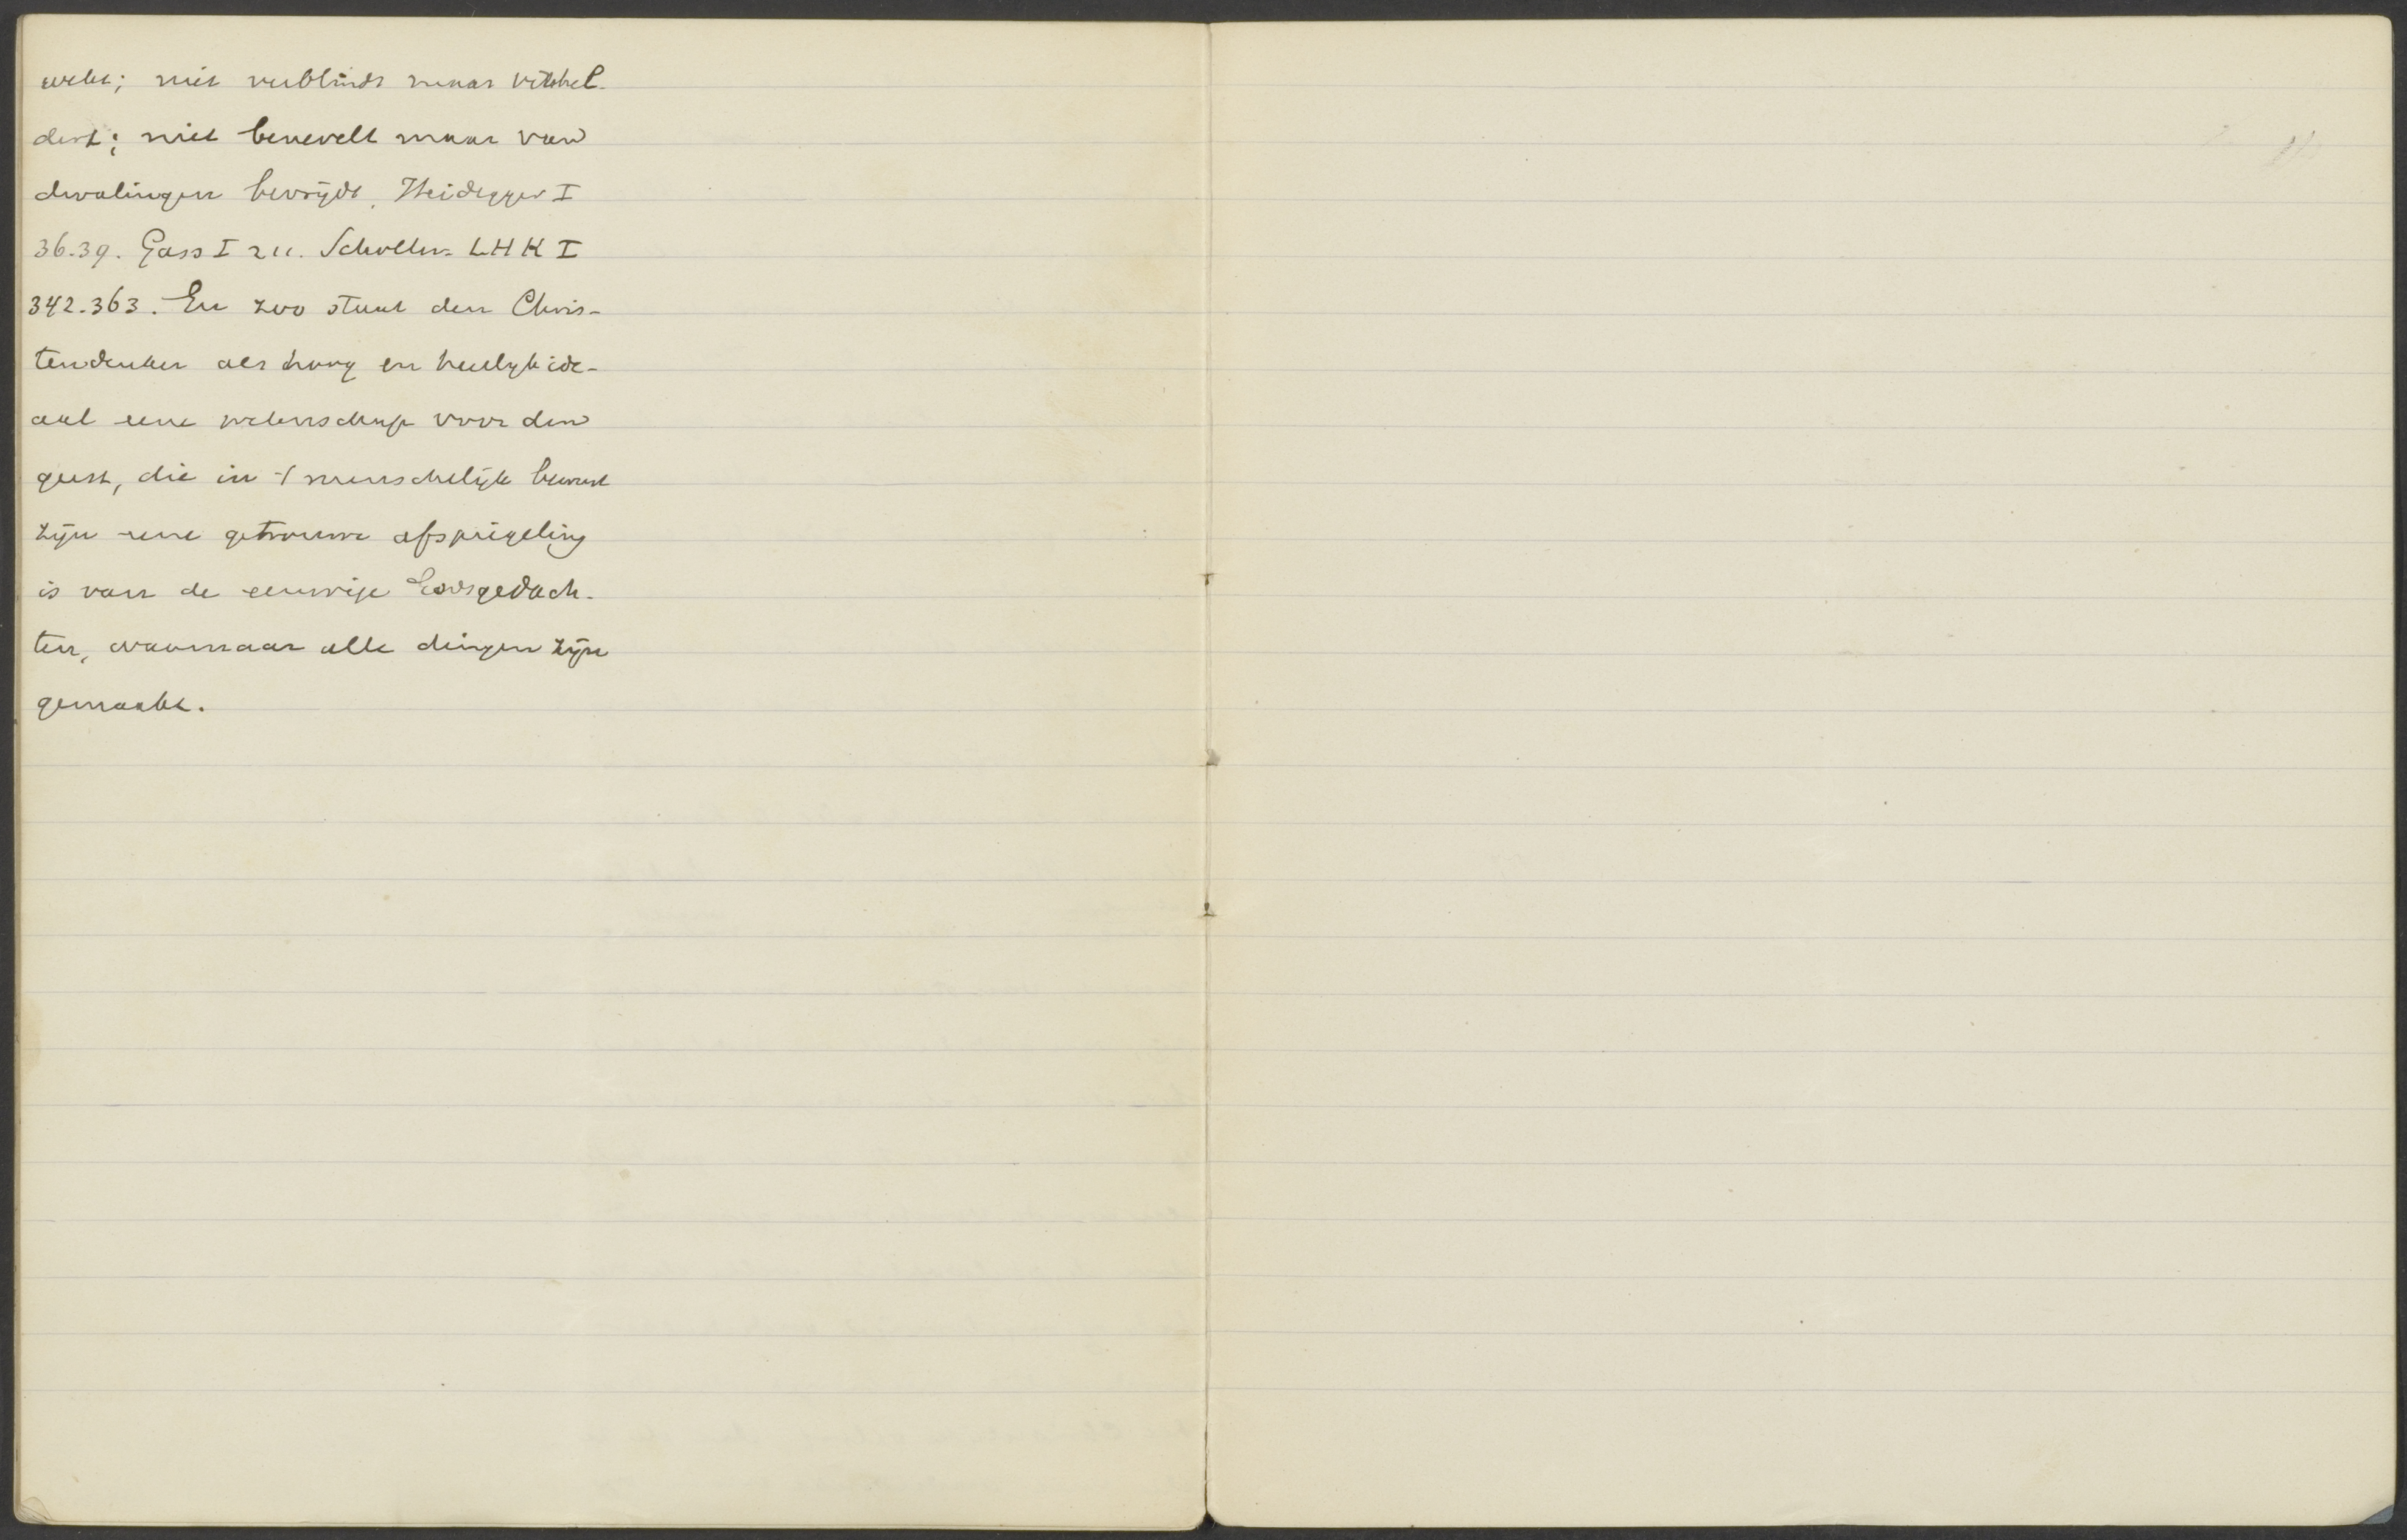 wekt; niet verblindt maar verhel-
dert; niet benevelt maar van
dwalingen bevrijdt. Heidegger I
36.39. Gass I 211. Scholten LHK I
342.363. En zoo staat den Chris-
tendenker als hoog en heerlijk ide-
aal eene wetenschap voor den
geest, die in 't menschelijk bewust
zijn eene getrouwe afspiegeling
is van de eeuwige Godsgedach-
ten, waarnaar alle dingen zijn
gemaakt.